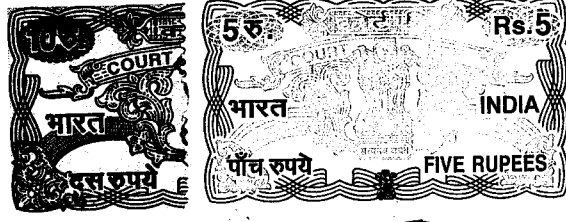 10रु.
COURT
भारत
दस रुपये
5 रु.
कोर्ट
Rs.5
COURT
भारत
INDIA
पाँच रुपये
FIVE RUPEES